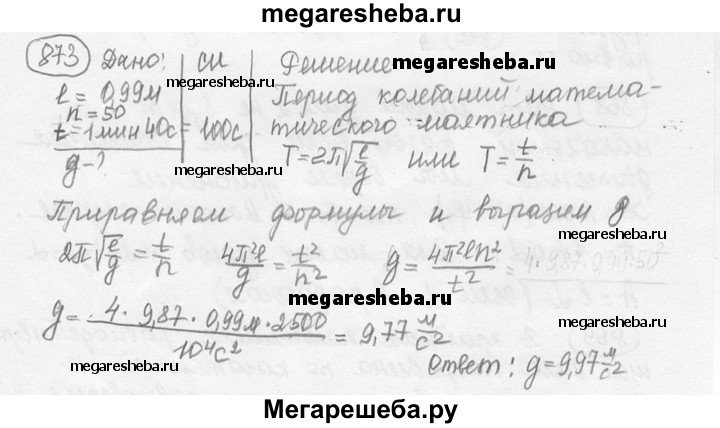 megaresheba.ru
873 Дано: | СИ | Решение
megaresheba.ru megaresheba.ru
l = 0,99м | | Период колебаний матема-
n = 50
t = 1 мин 40с = 100с | тического маятника
g - ? | T = 2π√(l/g) или T = t/n
megaresheba.ru megaresheba.ru
Приравняем формулы и выразим g
2π√(l/g) = t/n   4π²l/g = t²/n²   g = 4π²ln²/t² = 4·9,87·0,99·50²
megaresheba.ru megaresheba.ru
g = 4 · 9,87 · 0,99м · 2500 / 10⁴с² = 9,77 м/с²
megaresheba.ru megaresheba.ru
Ответ: g = 9,97 м/с²
Мегарешеба.ру